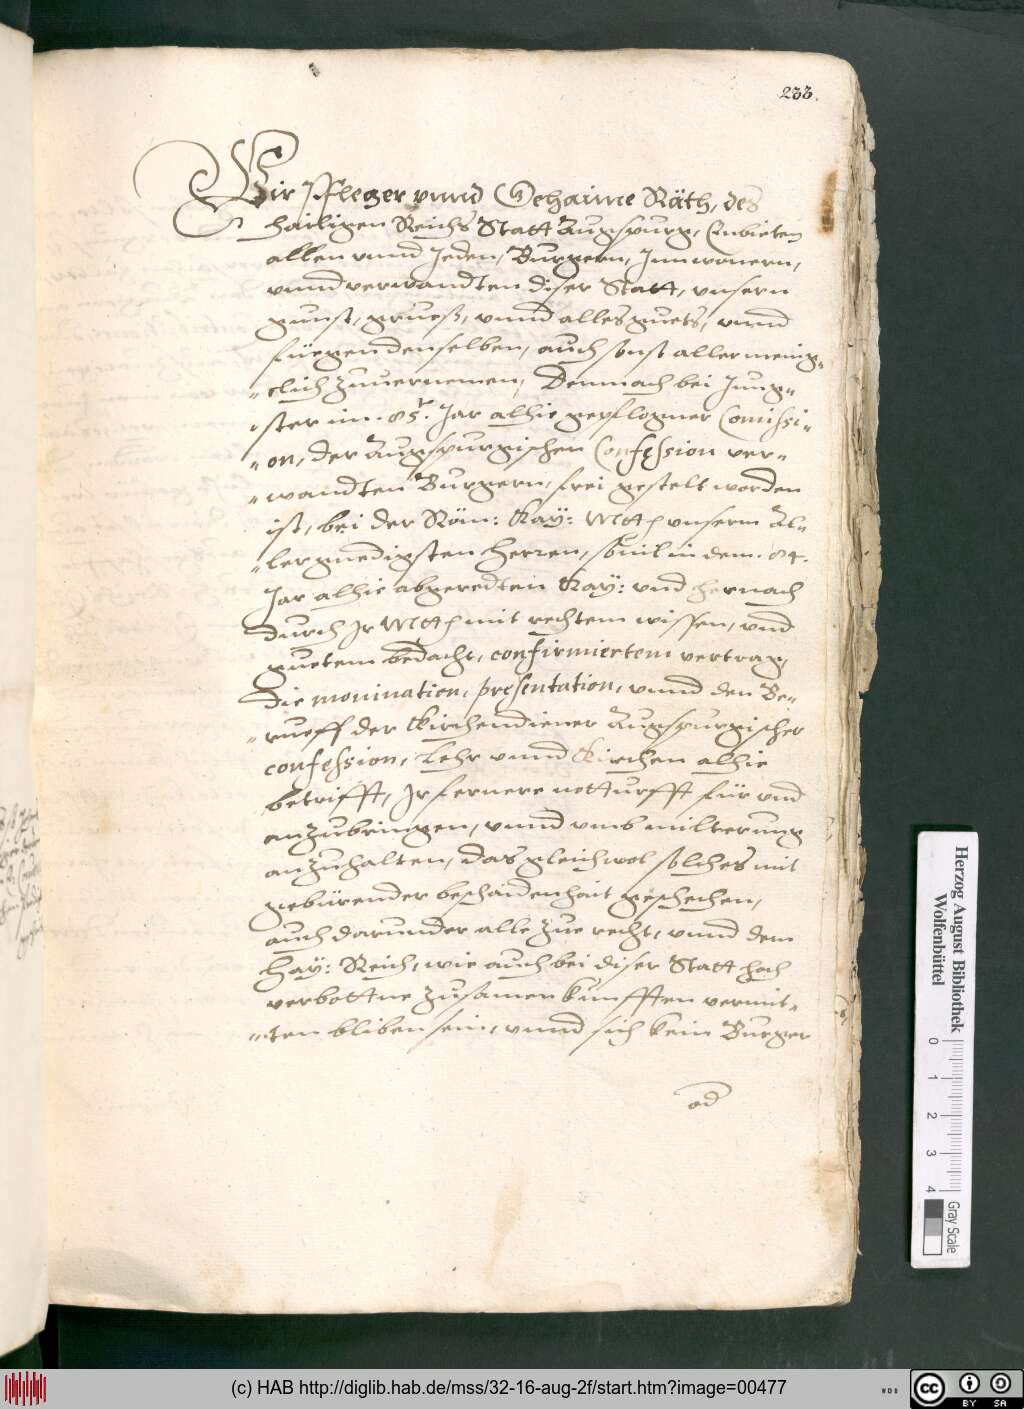 233.
Wir Pfleger vnnd Gehaime Räth, des
hailigen Reichs Statt Augspurg, Enbieten
allen vnnd Jeden, Burgern, Jnnwonern,
vnnd verwandten diser Statt, vnsern
gunst, grueß, vnnd alles guets, vnnd
füegen denselben, auch sonst allermenig„
„clich zuuernemen, Demnach bei Jung„
„ster im .85t. Jar alhie gepflogner Comissi„
„on, der Augspurgischen Confession ver„
„wandten Burgern, frei gestelt worden
ist, bei der Röm: Kay: Mtt vnserm Al„
„lergnedigsten Herren, souil in dem .84.
Jar alhie abgeredten Kay: vnd hernach
durch Jr Mtt mit rechtem wissen, vnd
guetem bedacht, confirmiertem vertrag,
die monination, presentation, vnnd den Be„
„rueff der Kirchendiener Augspurgischer
confession, Lehr vnnd Kirchen alhie
betrifft, Jr fernere notturfft für vnd
anzubringen, vnnd vmb milterung
anzuhalten, das gleichwol solches mit
gebürender beschaidenhait geschehen,
auch darunder alle zue recht, vnnd dem
Hay: Reich, wie auch bei diser Statt hoch
verbottne zusamen kunfften vermit„
„ten bliben sein, vnnd sich kein Burger
od
Herzog August Bibliothek
Wolfenbüttel
0 1 2 3 4
Gray Scale
(c) HAB http://diglib.hab.de/mss/32-16-aug-2f/start.htm?image=00477
WDB
cc BY SA